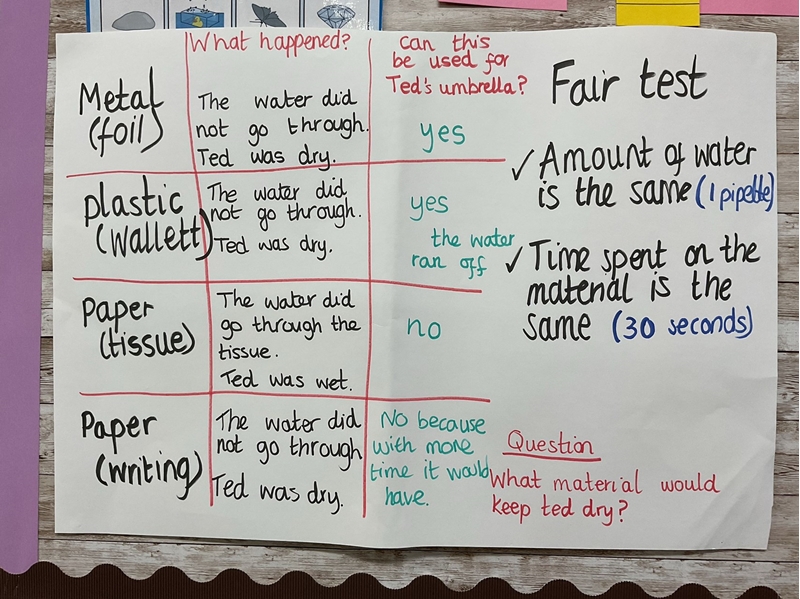 What happened?
Can this
be used for
Ted's umbrella?
Metal
(foil)
The water did
not go through.
Ted was dry.
yes
plastic
(wallett)
The water did
not go through.
Ted was dry.
yes
the water
ran off
Paper
(tissue)
The water did
go through the
tissue.
Ted was wet.
no
Paper
(writing)
The water did
not go through
Ted was dry.
No because
with more
time it would
have.
Fair test
✓ Amount of water
is the same (1 pipette)
✓ Time spent on the
material is the
same (30 seconds)
Question
What material would
keep ted dry?